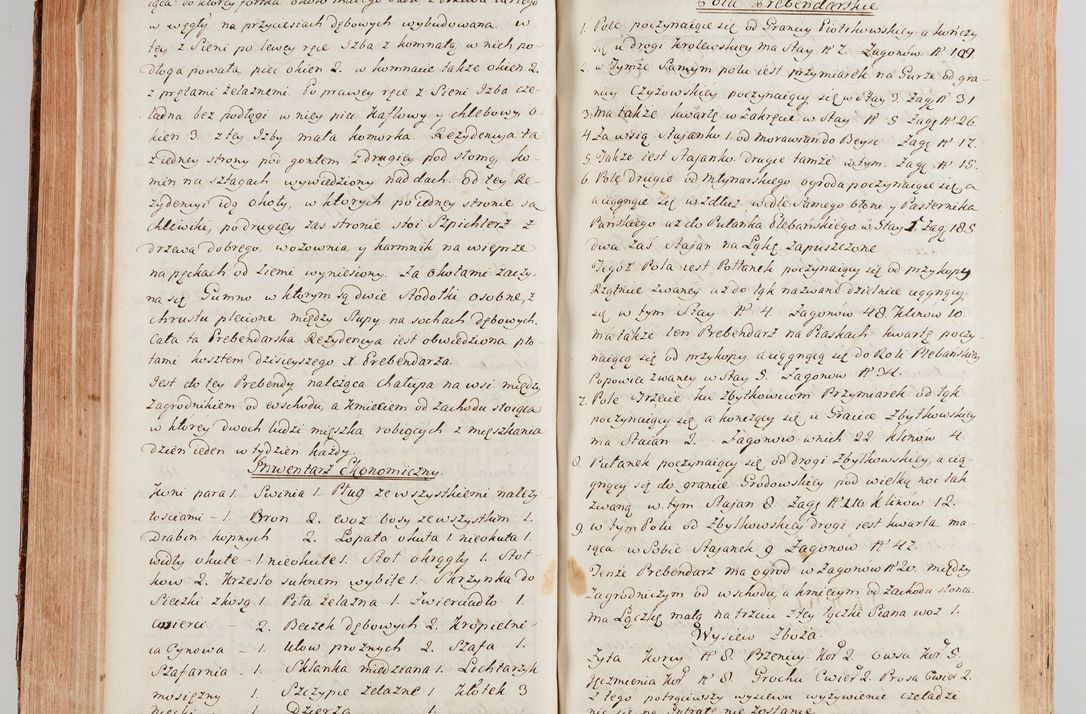 w węgły na przyciesiach dębowych wybudowana w
tey z Sieni po lewey ręce Izba z komnatą, w nich po-
dłoga powała, piec okien 2. w komnacie także okien 2.
z prętami żelaznemi. Po prawey ręce z Sieni Izba cze-
ladna bez podłogi w niey piec Kaflowy y chlebowy o-
kien 3. z tey Izby mała komorka. Rezydencya ta
z iedney strony pod gontem z drugiey pod słomą, ko-
min na sztagach wywiedziony nad dach. od tey Re-
zydencyi idą okoły, w ktorych po iedney stronie są
chlewiki, po drugiey zas stronie stoi Szpichlerz z
drzewa dobrego, wozownia y karmnik na wieprze
na pęckach od ziemi wyniesiony. Za okołami zaczy-
na się Gumno w ktorym są dwie stodołki osobne, z
chrustu plecione między słupy na sochach dębowych.
Cała ta Prebendarska Rezydencya iest obwiedziona pło-
tami kosztem dzisieyszego X. Prebendarza.
Jest do tey Prebendy należąca chałupa na wsi między
zagrodnikiem od wschodu, a kmieciem od zachodu stoiąca
w ktorey dwoch ludzi mięszka robiących z mięszkania
dzień ieden w tydzień każdy.
Inwentarz Ekonomiczny.
Koni para 1. Swinia 1. Pług ze wszystkiemi należy
tosciami – 1. Bron 2. woz bosy ze wszystkim 1.
Drabin kopnych 2. Łopata okuta 1. nieokuta 1.
widły okute – 1 nieokute 1. Stoł okrągły 1. Stoł-
kow 2. Krzesło suknem wybite 1. Skrzynka do
Sieczki z kosą 1. Piła żelazna 1. Zwierciadło 1.
cwierci – 2. Beczek dębowych 2. Kropielni-
ca Cynowa – 1. Ulow prożnych 2. Szafa 1.
Szafarnia – 1. Szklanka miedziana 1. Lichtarzyk
mosiężny 1. Szczypce żelazne 1. Młotek 3
Dzierża 1.
Pola Prebendarskie
1. Pole poczynaiące się od Granicy Piotrkowskiey a kończy
się u drogi Krolewskiey ma Stay N 7. Zagonów N 109.
2. w Tymże Samym polu iest przymiarek na Gurze od gra-
nicy Czyżowskiey poczynaiący się w Stay 3. Zag N 31
3. Ma także kwartę w Zakręcie w Stay N 5 Zag N 26.
4. Za wsią Stajanko 1. od Morawian do Beysc Zag N 17.
5. Także iest Stajanko drugie tamże w tym. Zag N 15.
6. Pole drugie od Młynarskiego ogroda poczynaiące się, a
a ciągnące się w zdłuż wedle Samego błonia y Pasternika
Pańskiego aż do Pułanka Plebańskiego w Stay 5 Zag. 185
dwa zas Stajan na Łąkę zapuszczone.
Tegoż Pola iest Połłanek poczynaiący się od przykopy
Rzątnie zwaney aż do łąk nazwane dzielnice ciągnący
się w tym Stay N 4. Zagonów 48. Klinów 10
Ma także ten Prebendarz na Piaskach kwartę poczy-
naiącą się od przykopy a ciągnącą się do Roli Plebańskiey
Popowica zwaney w Stay 5. Zagonow N 34.
7. Pole Trzecie ku Zbyłkowicom Przymiarek od łąk
poczynaiący się a kończący się u Granice Zbyłkowskiey
ma Staian 3. Zagonow w nich 22 klinów 4.
8. Pułanek poczynaiący się od drogi Zbyłkowskiey, a cią-
gnący się do granice Grodowskiey pod wielką noc tak
zwaną w tym Stajan 8. Zag N 110. Klinów 12.
9. w tym Polu od Zbyłkowskiey drogi iest kwarta ma-
iąca w Sobie Stajanek 9 Zagonow N 47.
Tenże Prebendarz ma ogrod w Zagonow N 20. między
Zagrodniczym od wschodu, a kmiecym od Zachodu słonca.
ma Łączkę małą na trzeciu z tey łączki Siana woz 1.
Wysiew Zboża.
Zyta Korcy N 8. Pszenicy Kor 2. Owsa Kor 5.
Jęczmienia Kor N 8. Grochu Cwier 2. Prosa Cwier 2.
z tego potrąciwszy wysiewu wyżywienie czeladzi
nic się na Intratę nie zostanie